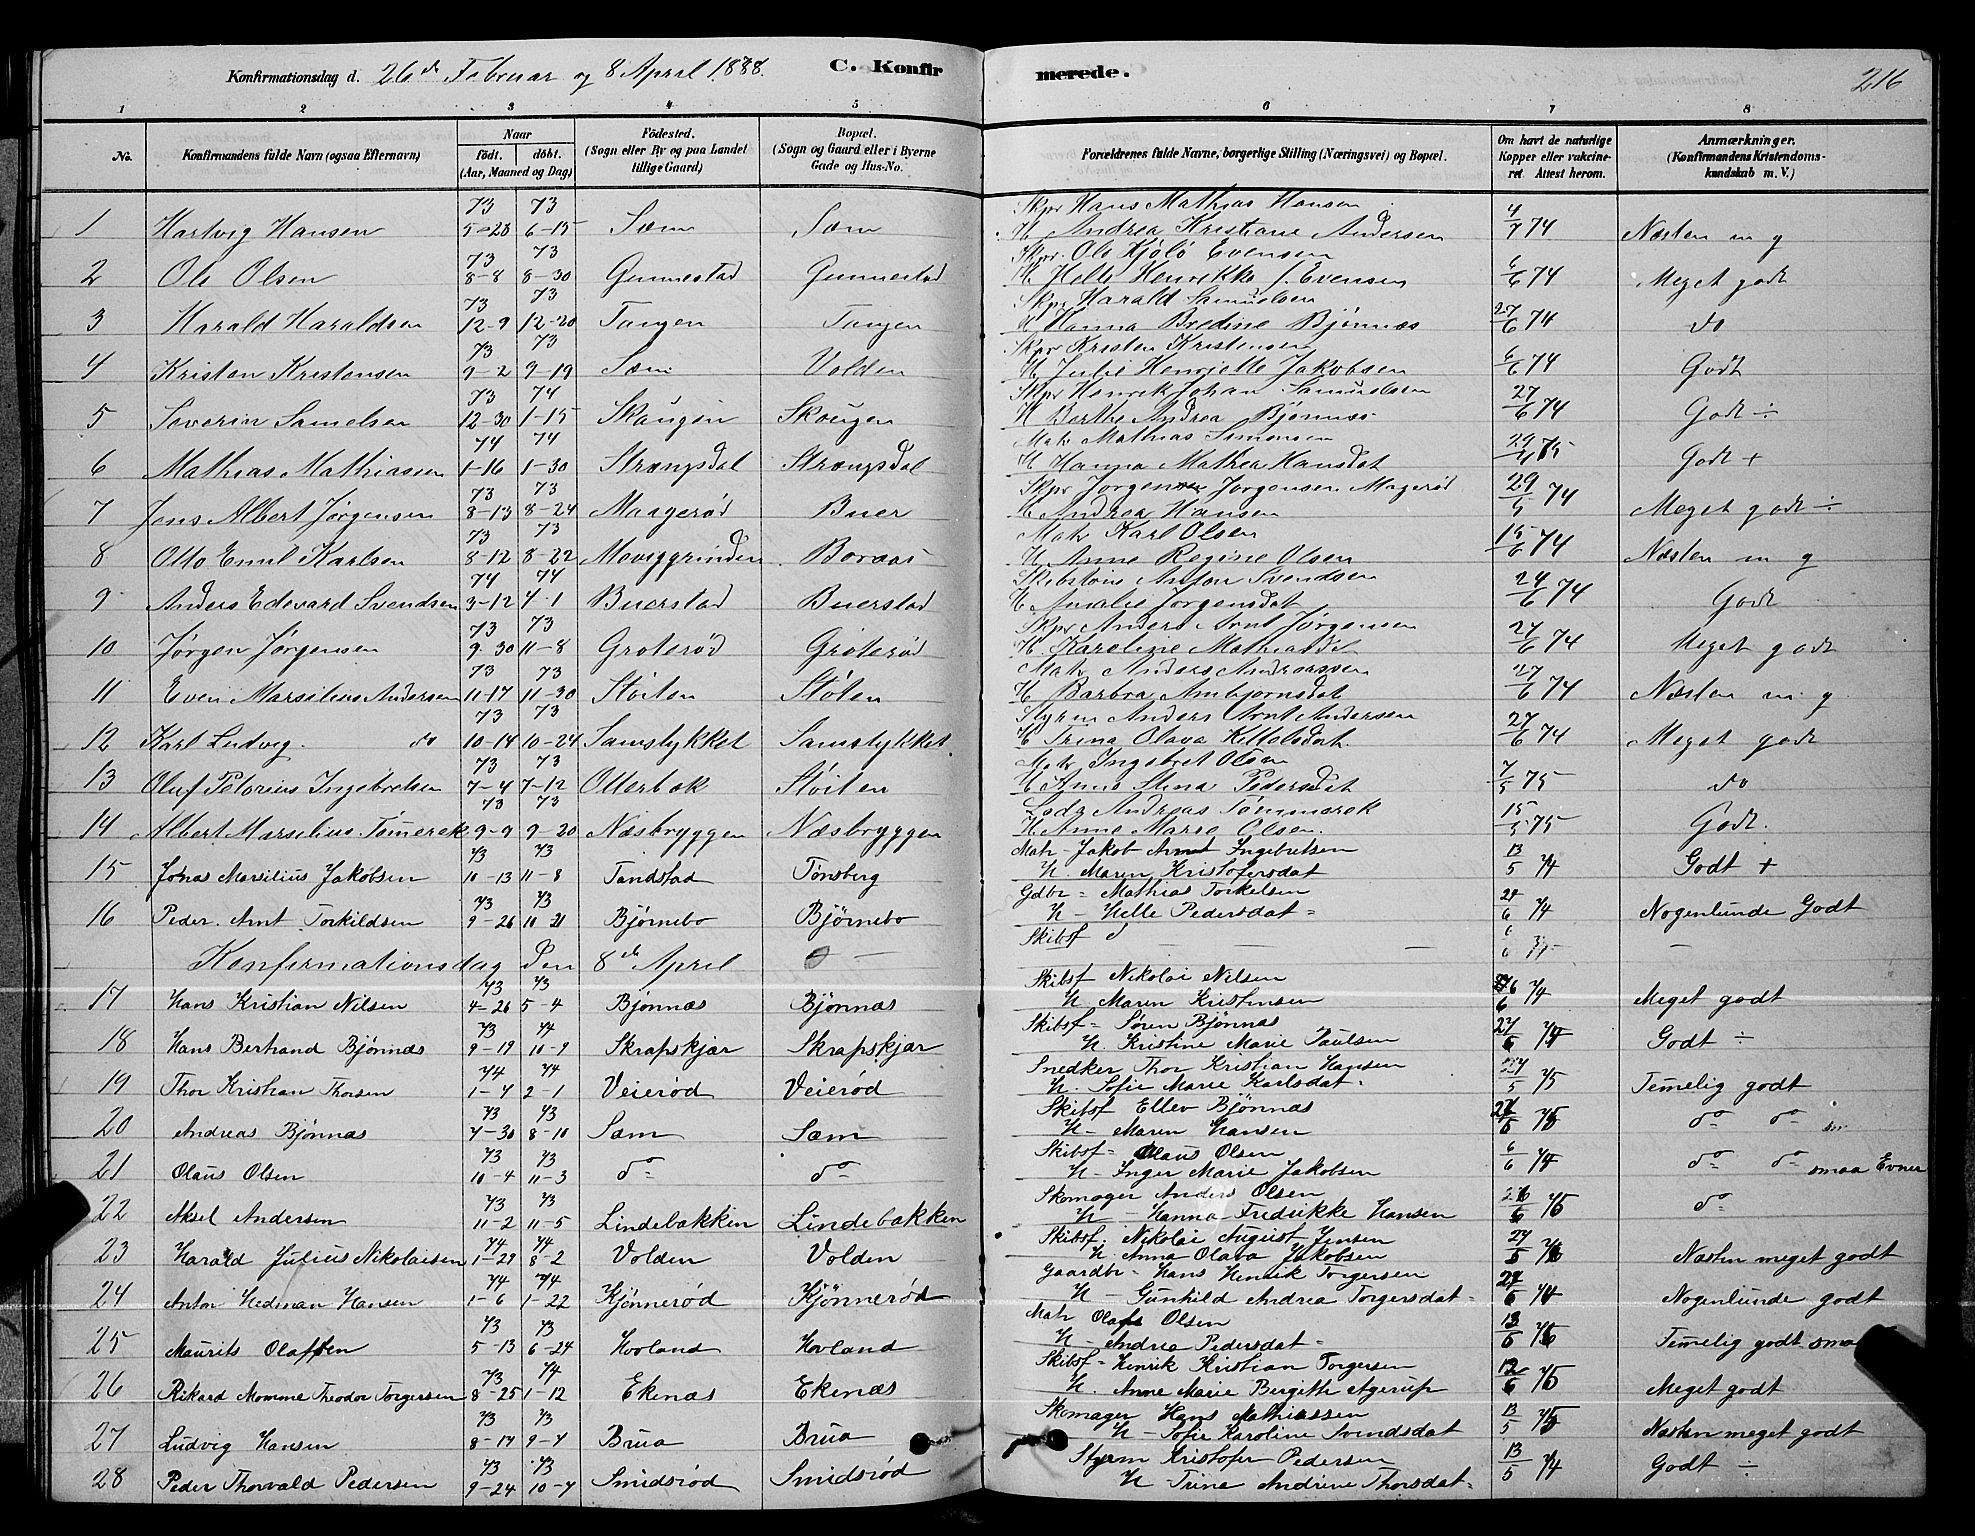 Konfirmationsdag d. 26de Februar og 8 April 1888. C. Konfirmerede. 216
1 2 3 4 5 6 7 8
No. Konfirmandens fulde Navn (ogsaa Efternavn) Naar födt. döbt. (Aar, Maaned og Dag) Födested. (Sogn eller By og paa Landet tillige Gaard) Bopæl. (Sogn og Gaard eller i Byerne Gade og Hus-No. Forældrenes fulde Navne, borgerlige Stilling (Næringsvei) og Bopæl. Om havt de naturlige Kopper eller vakcineret Attest herom. Anmærkninger. (Konfirmandens Kristendomskundskab m. V.)
73 73 Skpr Hans Mathias Hansen
1 Hartvig Hansen 5-28 6-15 Sæm Sæm H Andrea Kristiane Andersen 4/7 74 Næsten m g
73 73 Skpr. Ole Kjölö Evensen
2 Ole Olsen 8-8 8-30 Gunnestad Gunnestad H Helle Henrikke f. Evensen 6/6 74 Meget godt
73 73 Skpr Harald Samuelsen
3 Harald Haraldsen 12-9 12-20 Tangen Tangen H Hanna Bredine Bjönnæs 27/6 74 do
73 73 Skpr Kristen Kristensen
4 Kristen Kristensen 9-2 9-19 Sæm Volden H Julie Henriette Jakobsen 6/6 74 Godt
73 74 Skpr Henrik Johan Samuelsen
5 Severin Samelsen 12-30 1-15 Skaugen Skougen H Berthe Andrea Bjönnæs 27/6 74 Godt ÷
74 74 Matr Mathias Simensen
6 Mathias Mathiasen 1-16 1-30 Strængsdal Strængsdal H Hanna Mathea Hansdat 75 Godt +
73 73 Skpr Jørgen Jørgensen Magerød
7 Jens Albert Jørgensen 8-13 8-24 Maagerød Buer H Andrea Hansen 29/5 74 Meget godt ÷
73 73 Matr Karl Olsen
8 Otto Emil Karlsen 8-12 8-22 Moviggrinden Boraas H Anne Regine Olsen 15/6 74 Næsten m g
74 74 Anton Svendsen
9 Anders Edevard Svendsen 3-12 4-1 Buerstad Buerstad H Amalie Jørgensdat 24/6 74 Godt
73 73 Skpr Anders Arnt Jørgensen
10 Jørgen Jørgensen 9-30 11-8 Groterød Groterød H. Karoline Mathiasdt 27/6 74 Meget godt
73 73 Matr Anders Andreassen
11 Even Marselius Andersen 11-17 11-30 Støiten Støten H Barbra Ambjørnsdat 27/6 74 Næsten m. g
73 73 Styrm Anders Arnt Andersen
12 Karl Ludvig. do 10-14 10-24 Samstykket Samstykket. H Trina Olava Kittelsdat. 27/6 74 Meget godt
73 73 Matr Ingebret Olsen
13 Oluf Petorius Ingebretsen 7-4 7-12 Otterbæk Støiten H Anne Stina Pedersdat 7/5 75 do
73 73 Lods Andreas Tömmerek
14 Albert Marselius Tömerek 9-9 9-20 Næsbryggen Næsbryggen H Anne Marie Olsen. 15/5 75 Godt.
73 73 Matr Jakob Arnt Ingebretsen
15 Jonas Marsilius Jakobsen 10-13 11-8 Tandstad Tönsberg H. Maren Kristofersdat 13/5 74 Godt +
73 73 Gdbr = Mathias Torkelsen
16 Peder. Arnt Torkildsen 9-26 10-21 Björnebo Björnebo H - Helle Pedersdat = 24/6 74 Nogenlunde Godt
Konfirmationsdag den 8de April Skibsf
73 73 Skibsf Nikolai Nilsen
17 Hans Kristian Nilsen 4-26 5-4 Bjönnæs Bjönnæs H Maren Kristensen 74 Meget godt
73 74 Skibsf = Søren Bjönnæs
18 Hans Bertrand Bjönnæs 9-19 10-9 Skrapskjær Skrapskjær H. Kristine Marie Paulsen 27/6 74 Godt ÷
74 74 Snedker Thor Kristian Hansen
19 Thor Kristian Thorsen 1-4 2-1 Veierød Veierød H. Sofie Marie Karlsdat = 27/5 75 Temelig godt
73 73 Skibsf Ellev Bjönnæs
20 Andreas Bjönnæs 7-30 8-10 Sæm Sæm H - Maren Hansen 75 do do
73 73 Skibsf = Olaus Olsen
21 Olaus Olsen 10-4 11-3 do do H - Inger Marie Jakobsen 6/6 74 do do smaa Evner
73 73 Skomager Anders Olsen
22 Aksel Andersen 11-2 11-5 Lindebakken Lindebakken H - Hanna Fredrikke Hansen 75 do
74 74 Skibsf. Nikolai August Jensen
23 Harald Julius Nikolaisen 1-29 8-2 Volden Volden H. Anna Olava Jakobsen 27/5 Næsten meget godt
74 74 Gaardbr - Hans Henrik Torgersen
24 Anton Hedman Hansen 1-6 1-22 Kjönnerød Kjönnerød H - Gunhild Andrea Torgersdat = 74 Nogenlunde godt
73 73 Matr Olafs Olsen
25 Maurits Olafsen 5-13 6-24 Hovland Hovland H - Andrea Pedersdat = Temelig godt sma
73 74 Skibsf = Henrik Kristian Torgersen
26 Rikard Momme Theodor Torgersen 8-25 1-12 Ekenæs Ekenæs H. Anne Marie Bergith Agerup 75 Meget godt
73 73 Skomager Hans Mathiassen
27 Ludvig Hansen 8-14 9-7 Brua Brua H - Sofie Karoline Svendsdat 13/5 75 Næsten meget godt
73 73 Styrm Kristofer Pedersen
28 Peder Thorvald Pedersen 9-24 10-7 Smidsröd Smidsröd H Trine Andrine Thorsdat = 13/5 74 Godt ÷